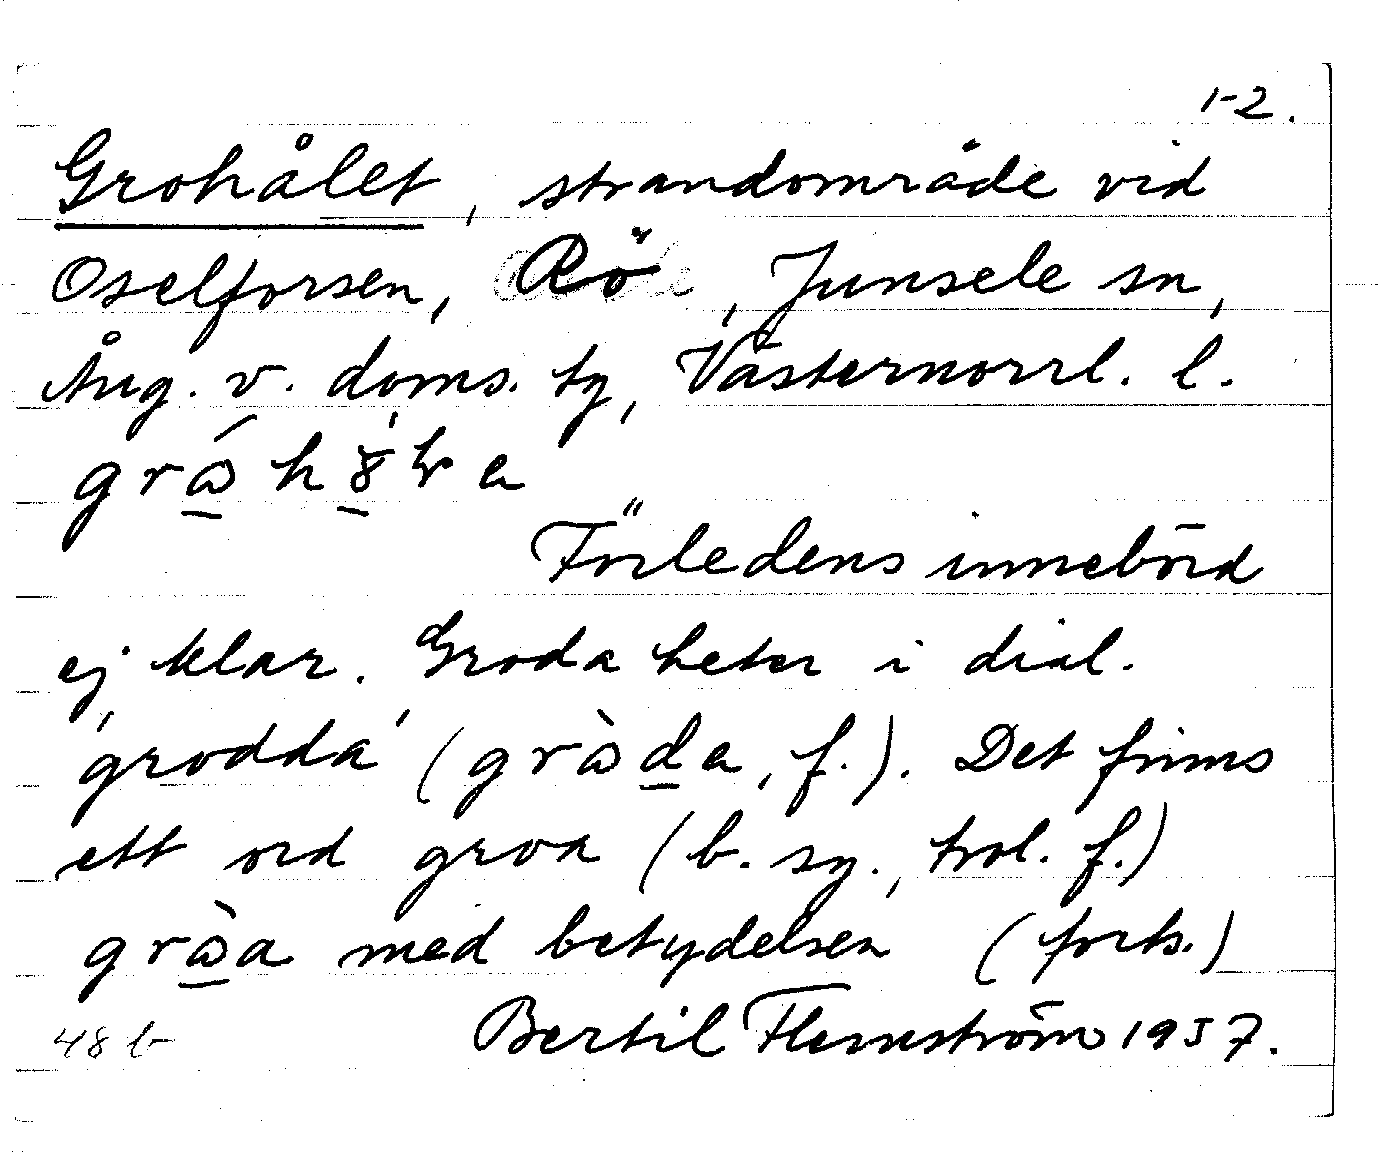 1-2.
Grohålet, strandområde vid
Oselforsen, Rö, Junsele sn,
Ång. v. doms. tg, Västernorrl. l.
Förledens innebörd
ej klar. Groda heter i dial.
'grodda' (gròda, f.). Det finns
ett ord groa (b. sg., trol. f.)
gròa med betydelsen (forts.)
48 b Bertil Flemström 1957.